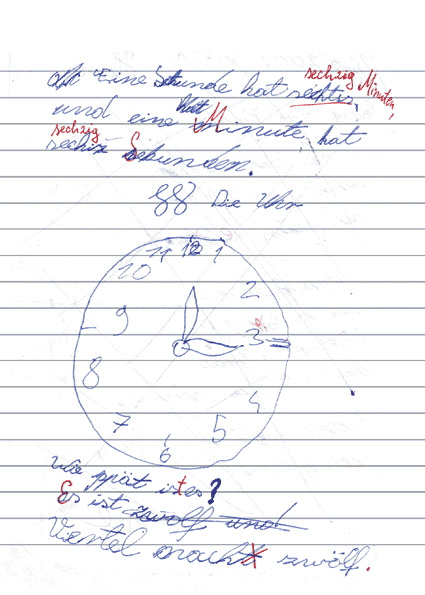 sechzig Minuten,
Eine Stunde hat sechtis,
und eine Minute, hat
sechzig
Sekunden.
§§ Die Uhr
11 12 1
10 2
9 3
8 4
7 5
6
Wie spät ist es?
Es ist zwölf und
Viertel nach zwölf.